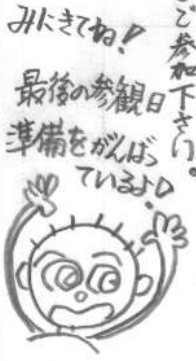 ご参加下さい。
みにきてね!
最後の参観日
準備をがんばっ
ているよ♡